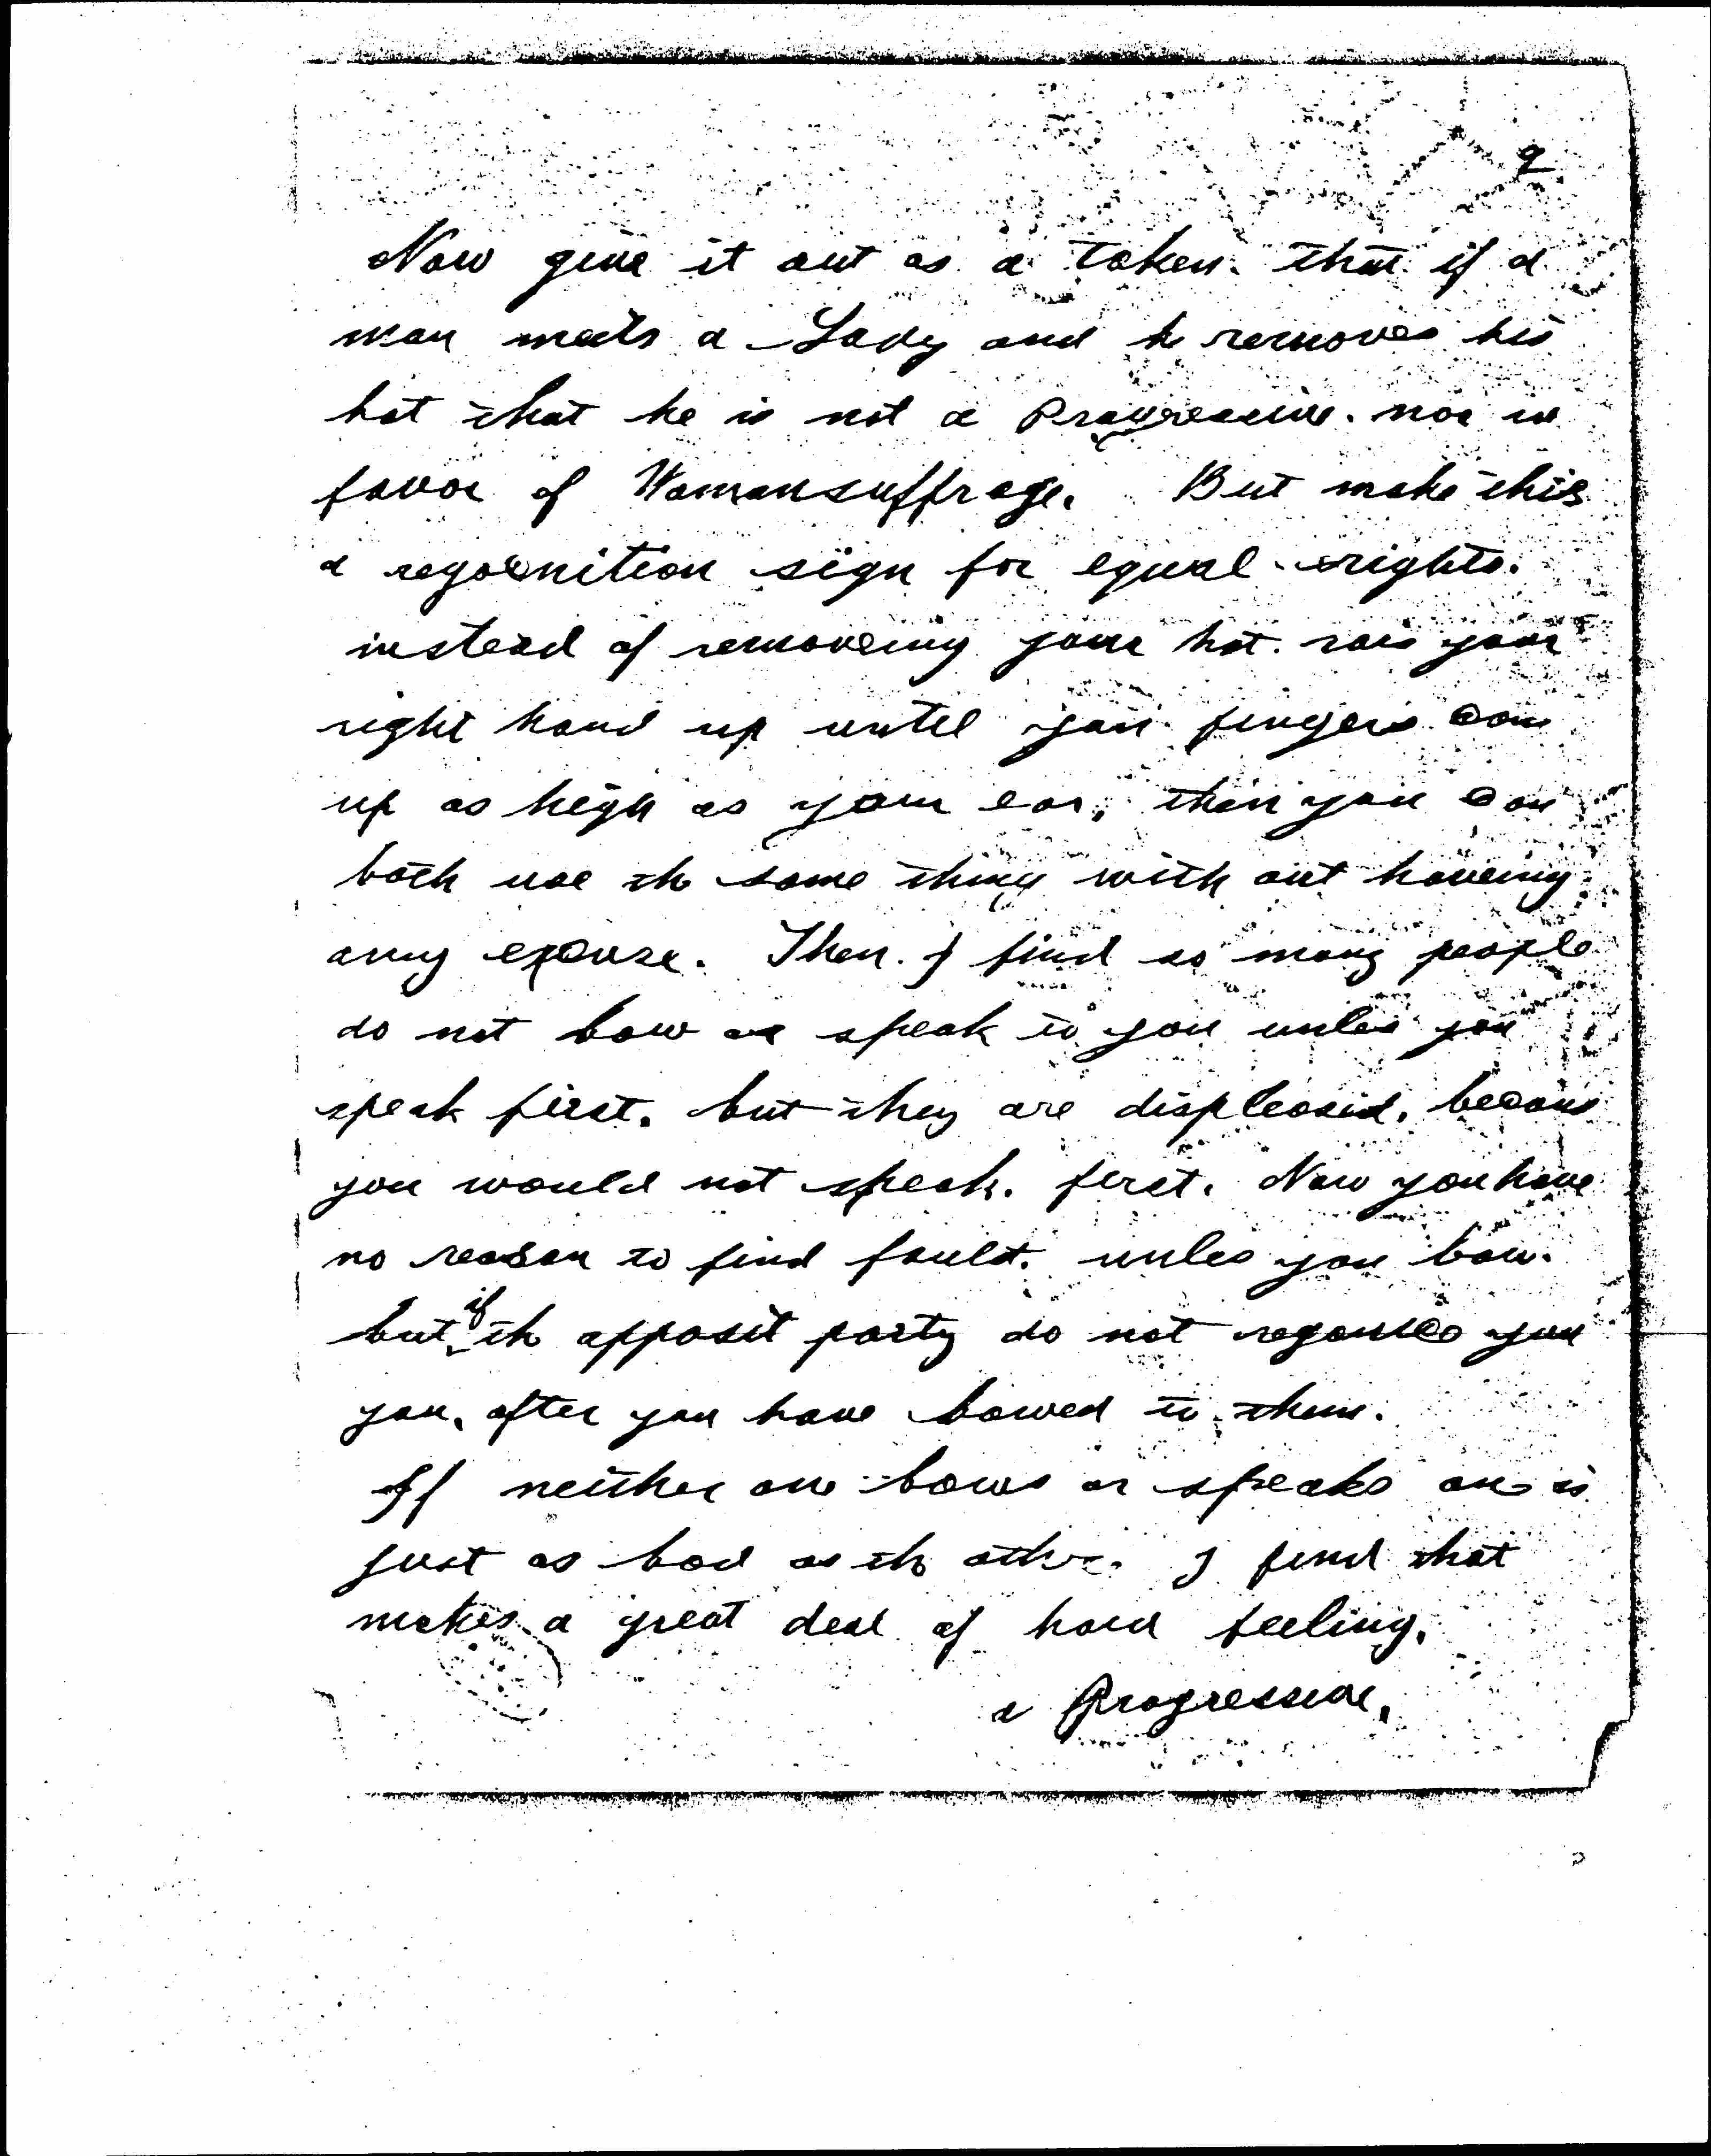 2
Now give it out as a token. that if a
man meets a Lady and he removes his
hat that he is not a Progressive. nor in
favor of Womansuffrage. But make this
a regocnition sign for equal rights.
instead of removeing your hat. rais your
right hand up untel your fingers com
up as high as your ear, then you can
both use th same thing with out haveing
any excuse. Then. I find so many people
do not bow or speak to you unles you
speak first. but they are displeased. becaus
you would not speak. first. Now you have
no reason to find fault. unles you bow.
but if th opposit party do not you
you, after you have bowed to them.
If neither one bows or speaks one is
just as bad as th other. I find that
makes a great deal of hard feeling.
a Progressive.